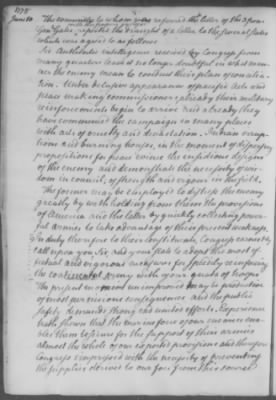 1778
June 10
The committee to whom was referred the letter of the 9 from
Gen Gates, reported the draught of a letter to the several states
which was agreed to as follows
Sir Authentic intelligence received by Congress from
many quarters leaves no longer doubtful in what man-
ner the enemy mean to conduct their plan of concilia-
tion. Under delusive appearances of pacific Acts and
peace making commissioners already their military
reinforcements begin to arrive and already they
have commenced the campaign in many places
with acts of cruelty and devastation. Indian erup-
tions and burning houses, in the moment of displaying
propositions for peace evince the insidious designs
of the enemy and demonstrate the necessity of wis-
dom in council, of strength and vigour in the field.
The former may be employed to distress the enemy
greatly by withholding from them the provisions
of America and the latter by quickly collecting power-
ful armies to take advantage of their present weakness.
In duty therefore to their constituents, Congress earnestly
call upon you Sir, and your state to adopt the most ef-
fectual and vigorous measures for speedily reinforcing
the continental army with your quota of troops
The present moment unimproved may be productive
of most pernicious consequences and the public
safety demands strong and united efforts. Experience
hath shewn that the marine force of our enemies ena-
bles them to secure for the support of their armies
almost the whole of our exported provisions and therefore
Congress empressed with the necessity of preventing
the supplies derived to our foes from this source